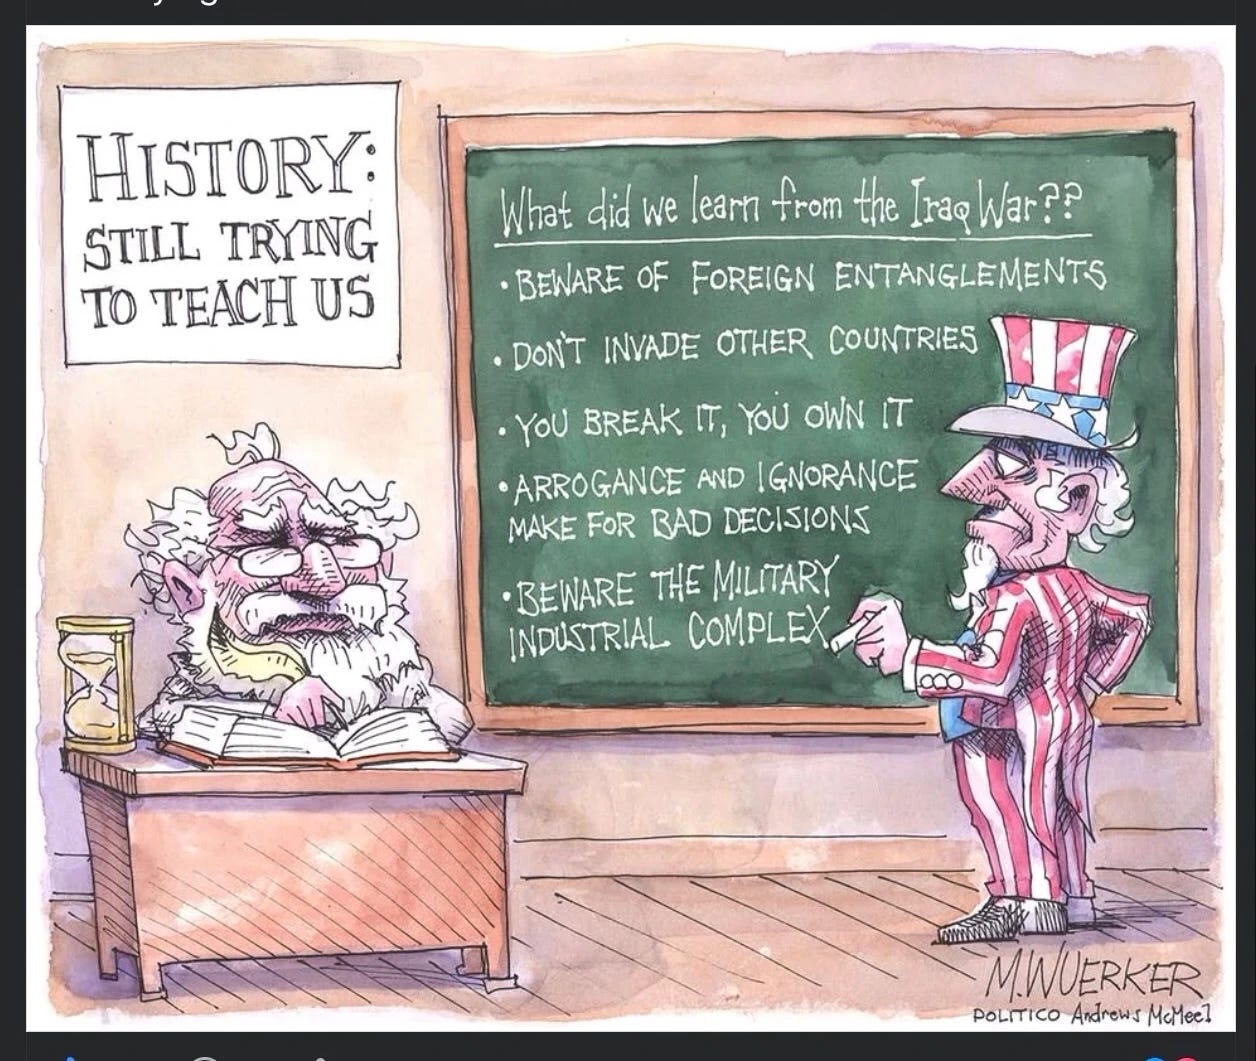 HISTORY:
STILL TRYING
TO TEACH US
What did we learn from the Iraq War??
• BEWARE OF FOREIGN ENTANGLEMENTS
• DON'T INVADE OTHER COUNTRIES
• YOU BREAK IT, YOU OWN IT
• ARROGANCE AND IGNORANCE
MAKE FOR BAD DECISIONS
• BEWARE THE MILITARY
INDUSTRIAL COMPLEX
M.WUERKER
POLITICO Andrews McMeel